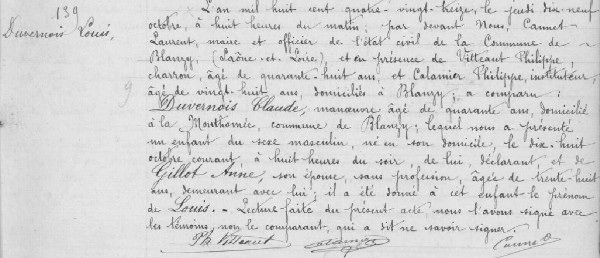 139
Duvernois Louis,
L'an mil huit cent quatre-vingt-treize, le jeudi dix-neuf
octobre, à huit heures du matin, par devant Nous, Cannet
Laurent, maire et officier de l'état civil de la Commune de
Blanzy, (Saône-et-Loire), et en présence de Vitteaut Philippe,
charron, âgé de quarante-huit ans, et Calamier Philippe, instituteur,
âgé de vingt-huit ans, domiciliés à Blanzy; a comparu:
Duvernois Claude, manœuvre âgé de quarante ans, domicilié
à la Monthomée, commune de Blanzy; lequel nous a présenté
un enfant du sexe masculin, né en son domicile, le dix-huit
octobre courant, à huit heures du soir, de lui, déclarant, et de
Gillot Anne, son épouse, sans profession, âgée de trente-huit
ans, demeurant avec lui; il a été donné à cet enfant le prénom
de Louis. - Lecture faite du présent acte nous l'avons signé avec
les témoins, non le comparant, qui a dit ne savoir signer.
Ph. Vitteaut Cannet